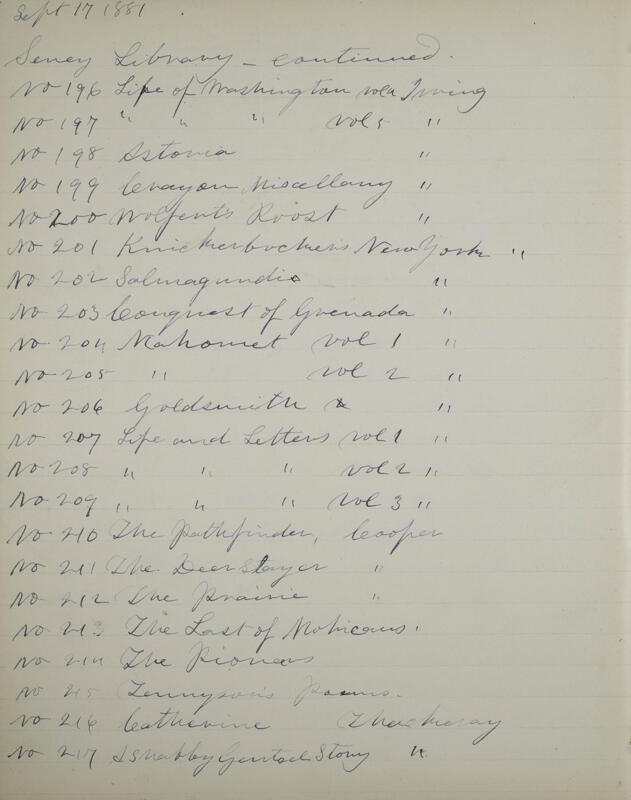 Sept 17 1881
Seney Library - continued.
No 196 Life of Washington vol 4 Irving
No 197 " " " vol 5 "
No 198 Astoria "
No 199 Crayon Miscellany "
No 200 Wolfert's Roost "
No 201 Knickerbocker's New York "
No 202 Salmagundi "
No 203 Conquest of Grenada "
No 204 Mahomet vol 1 "
No 205 " vol 2 "
No 206 Goldsmith "
No 207 Life and Letters vol 1 "
No 208 " " " vol 2 "
No 209 " " " vol 3 "
No 210 The Pathfinder, Cooper
No 211 The Deer Slayer "
No 212 The Prairie "
No 213 The Last of Mohicans "
No 214 The Pioneers
No 215 Tennyson's Poems.
No 216 Catherine Thackeray
No 217 A Shabby Genteel Story "